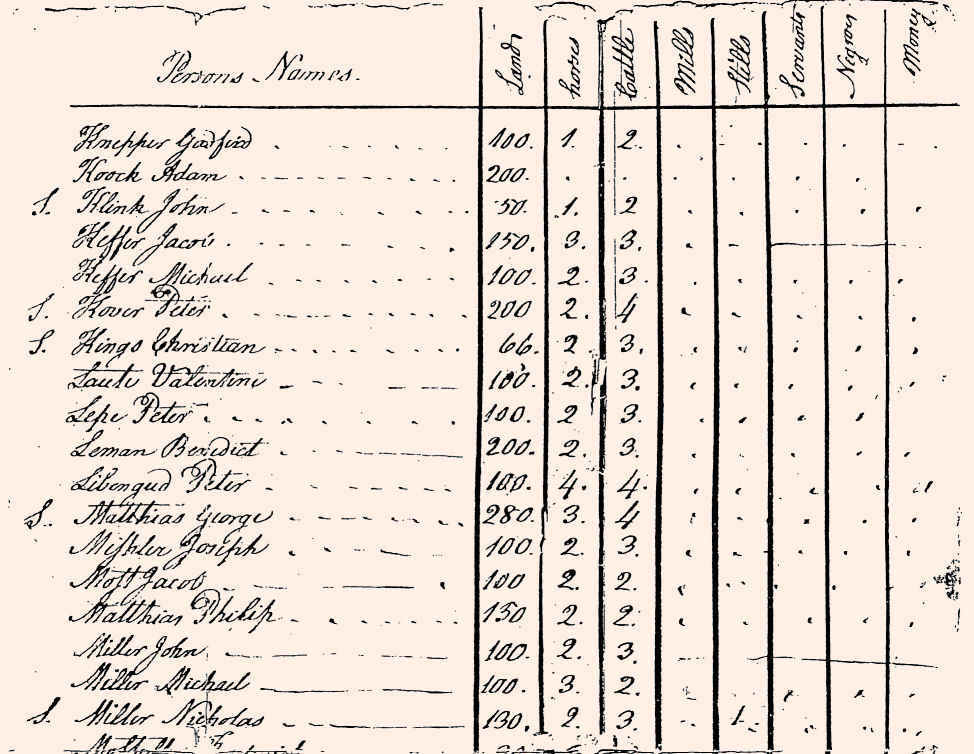 Persons Names. Land horses Cattle Mills Stills Servants Negroes Money
Knepper Godfird 100. 1. 2.
Kooch Adam 200.
S. Klink John 50. 1. 2
Keffer Jacob 150. 3. 3.
Keffer Michael 100. 2. 3.
S. Kover Peter 200 2. 4
S. Kings Christian 66. 2 3.
Laute Valentine 100. 2. 3.
Lepe Peter 100. 2 3.
Leman Benedict 200. 2. 3.
Libengud Peter 100. 4. 4.
S. Matthias George 280. 3. 4
Mishler Joseph 100. 2. 3.
Jacob 100 2. 2.
Matthias Philip 150 2. 2.
Miller John 100. 2. 3.
Miller Michael 100. 3. 2.
S. Miller Nicholas 130. 2. 3. 1.